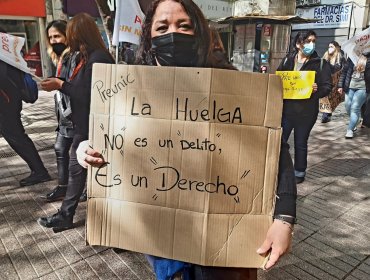 FARMACIAS
DR. SIMI
Preunic
La HuelgA
"NO" es un "Delito,
"Es un "Derecho"